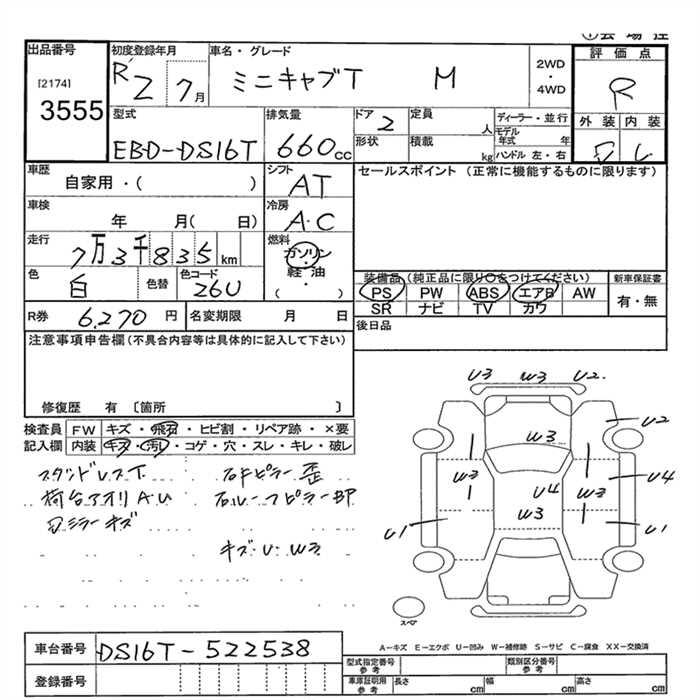 出品番号 初度登録年月 車名・グレード 2WD・4WD 評価点
[2174] R2 7月 ミニキャブT M R
3555
型式 排気量 ドア 定員 ディーラー・並行 外装 内装
EBD-DS16T 660cc 2 人 モデル年式 年
形状 積載 kg ハンドル 左・右
車歴 シフト セールスポイント (正常に機能するものに限ります)
自家用・( ) AT
車検 冷房
年 月( 日) A・C
走行 燃料
7万3千835km ガソリン
色 色替 色コード 軽油
白 26U ( ・ )
装備品 (純正品に限り○をつけてください) 新車保証書
PS PW ABS エアB AW 有・無
SR ナビ TV カワ
R券 6,270円 名変期限 月 日 後日品
注意事項申告欄(不具合内容等は具体的に記入して下さい)
修復歴 有 〔箇所 〕
検査員記入欄 FW キズ・飛石・ヒビ割・リペア跡・×要
内装 キズ・汚レ・コゲ・穴・スレ・キレ・破レ
スタッドレスT 右Fピラー歪
荷台アオリA・U 右ルーフピラー部
キズ・U・W3
U3 W3 U2
U2
W3
W3 U4 W3 U4
W3
U1 U1
スペア
A-キズ E-エクボ U-凹み W-補修跡 S-サビ C-腐食 XX-交換済
車台番号 DS16T-522538
登録番号
型式指定番号 参考 類別区分番号 参考
車庫証明用 参考 長さ cm 幅 cm 高さ cm